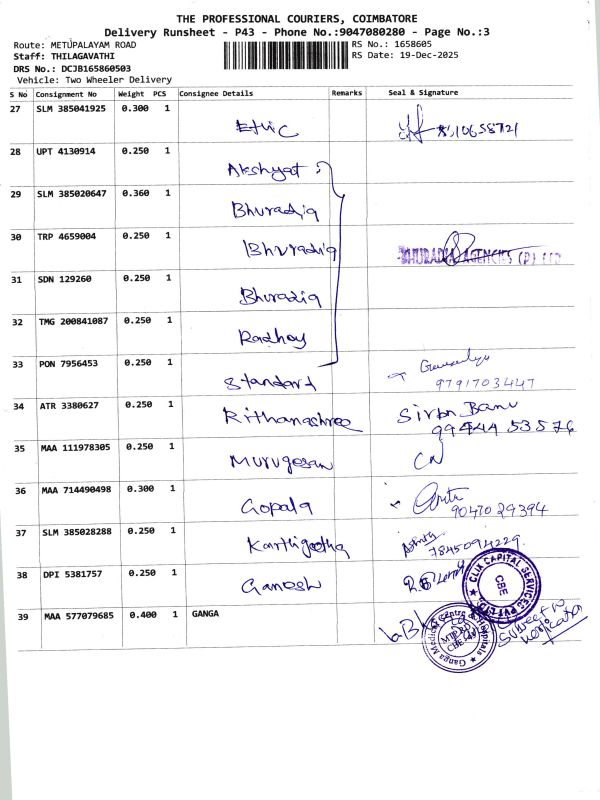 THE PROFESSIONAL COURIERS, COIMBATORE
Delivery Runsheet - P43 - Phone No.:9047080280 - Page No.:3
Route: METUPALAYAM ROAD RS No.: 1658605
Staff: THILAGAVATHI RS Date: 19-Dec-2025
DRS No.: DCJB165860503
Vehicle: Two Wheeler Delivery
S No Consignment No Weight PCS Consignee Details Remarks Seal & Signature
27 SLM 385041925 0.300 1 Ethic
28 UPT 4130914 0.250 1 Akshyat
29 SLM 385020647 0.360 1 Bhuradia
30 TRP 4659004 0.250 1 Bhuradia BHURADIA AGENCIES (P) LTD
31 SDN 129260 0.250 1 Bhuradia
32 TMG 200841087 0.250 1 Radhey
33 PON 7956453 0.250 1 Standard
9791703447
34 ATR 3380627 0.250 1 Rithanashree Siron Banu
99444 53576
35 MAA 111978305 0.250 1 Murugesan
36 MAA 714490498 0.300 1 Gopala
9047029394
37 SLM 385028288 0.250 1 Karthigeetha
7845094229
38 DPI 5381757 0.250 1 Ganesh
CLIX CAPITAL SERVICES PVT LTD
CBE
39 MAA 577079685 0.400 1 GANGA
Ganga Medical Centre & Hospitals
Subject to
verification